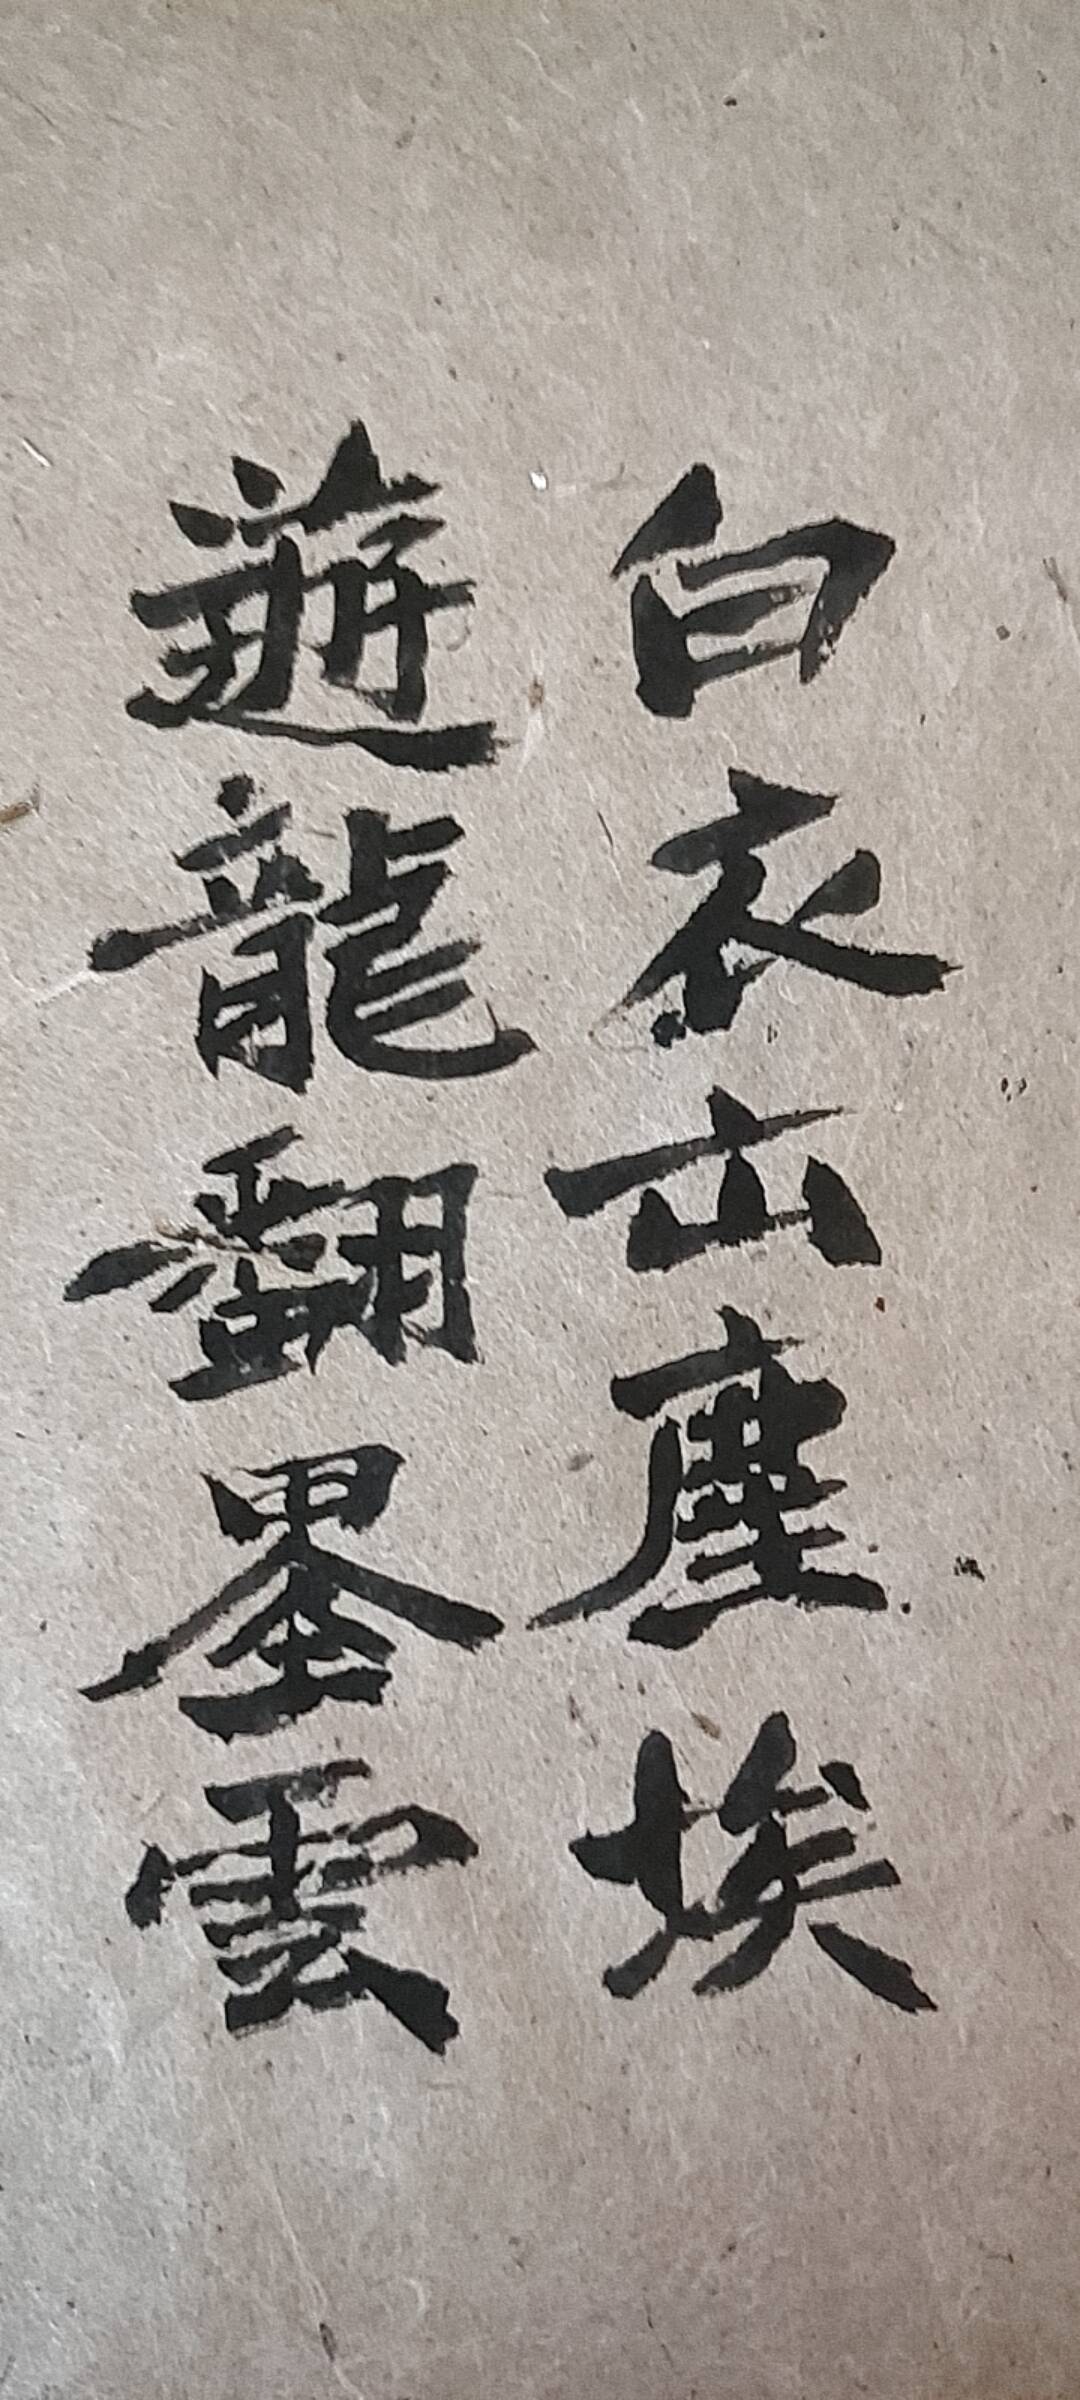 白衣出塵埃
遊龍翻墨雲